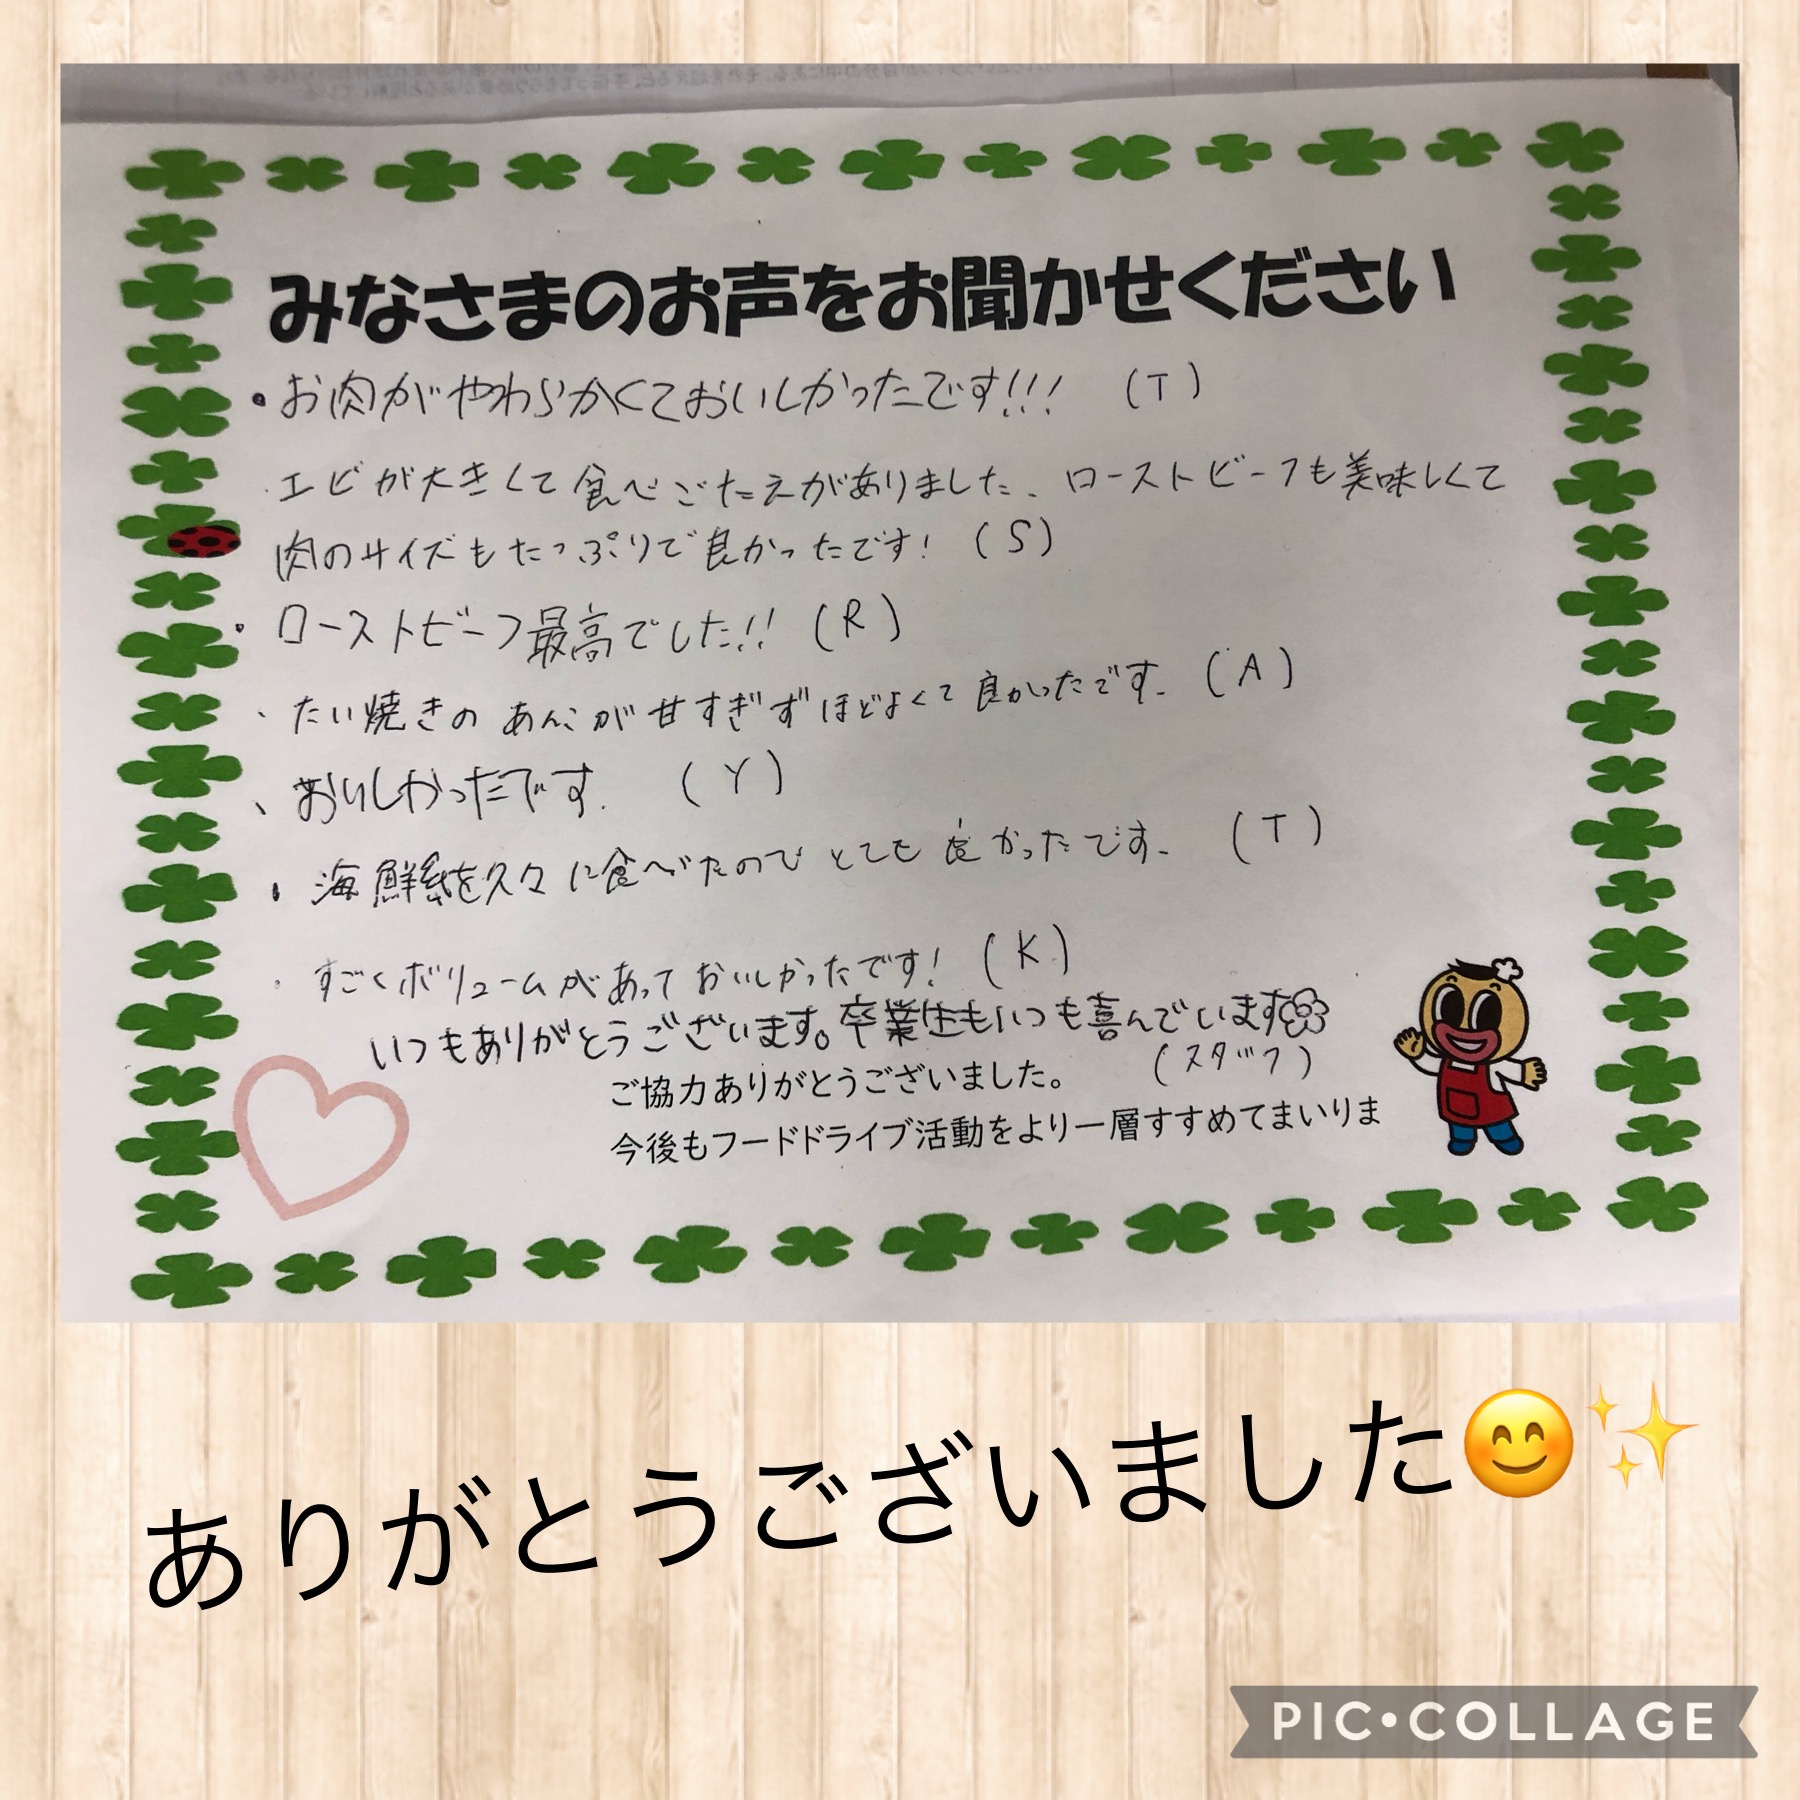 みなさまのお声をお聞かせください
・お肉がやわらかくておいしかったです!!! (T)
・エビが大きくて食べごたえがありました、ローストビーフも美味しくて
肉のサイズもたっぷりで良かったです! (S)
・ローストビーフ最高でした!! (R)
・たい焼きのあんこが甘すぎずほどよくて良かったです。 (A)
・おいしかったです。 (Y)
・海鮮系を久々に食べたのでとても良かったです。 (T)
・すごくボリュームがあっておいしかったです! (K)
いつもありがとうございます。卒業生もいつも喜んでいます
(スタッフ)
ご協力ありがとうございました。
今後もフードドライブ活動をより一層すすめてまいりま
ありがとうございました😊✨
PIC•COLLAGE